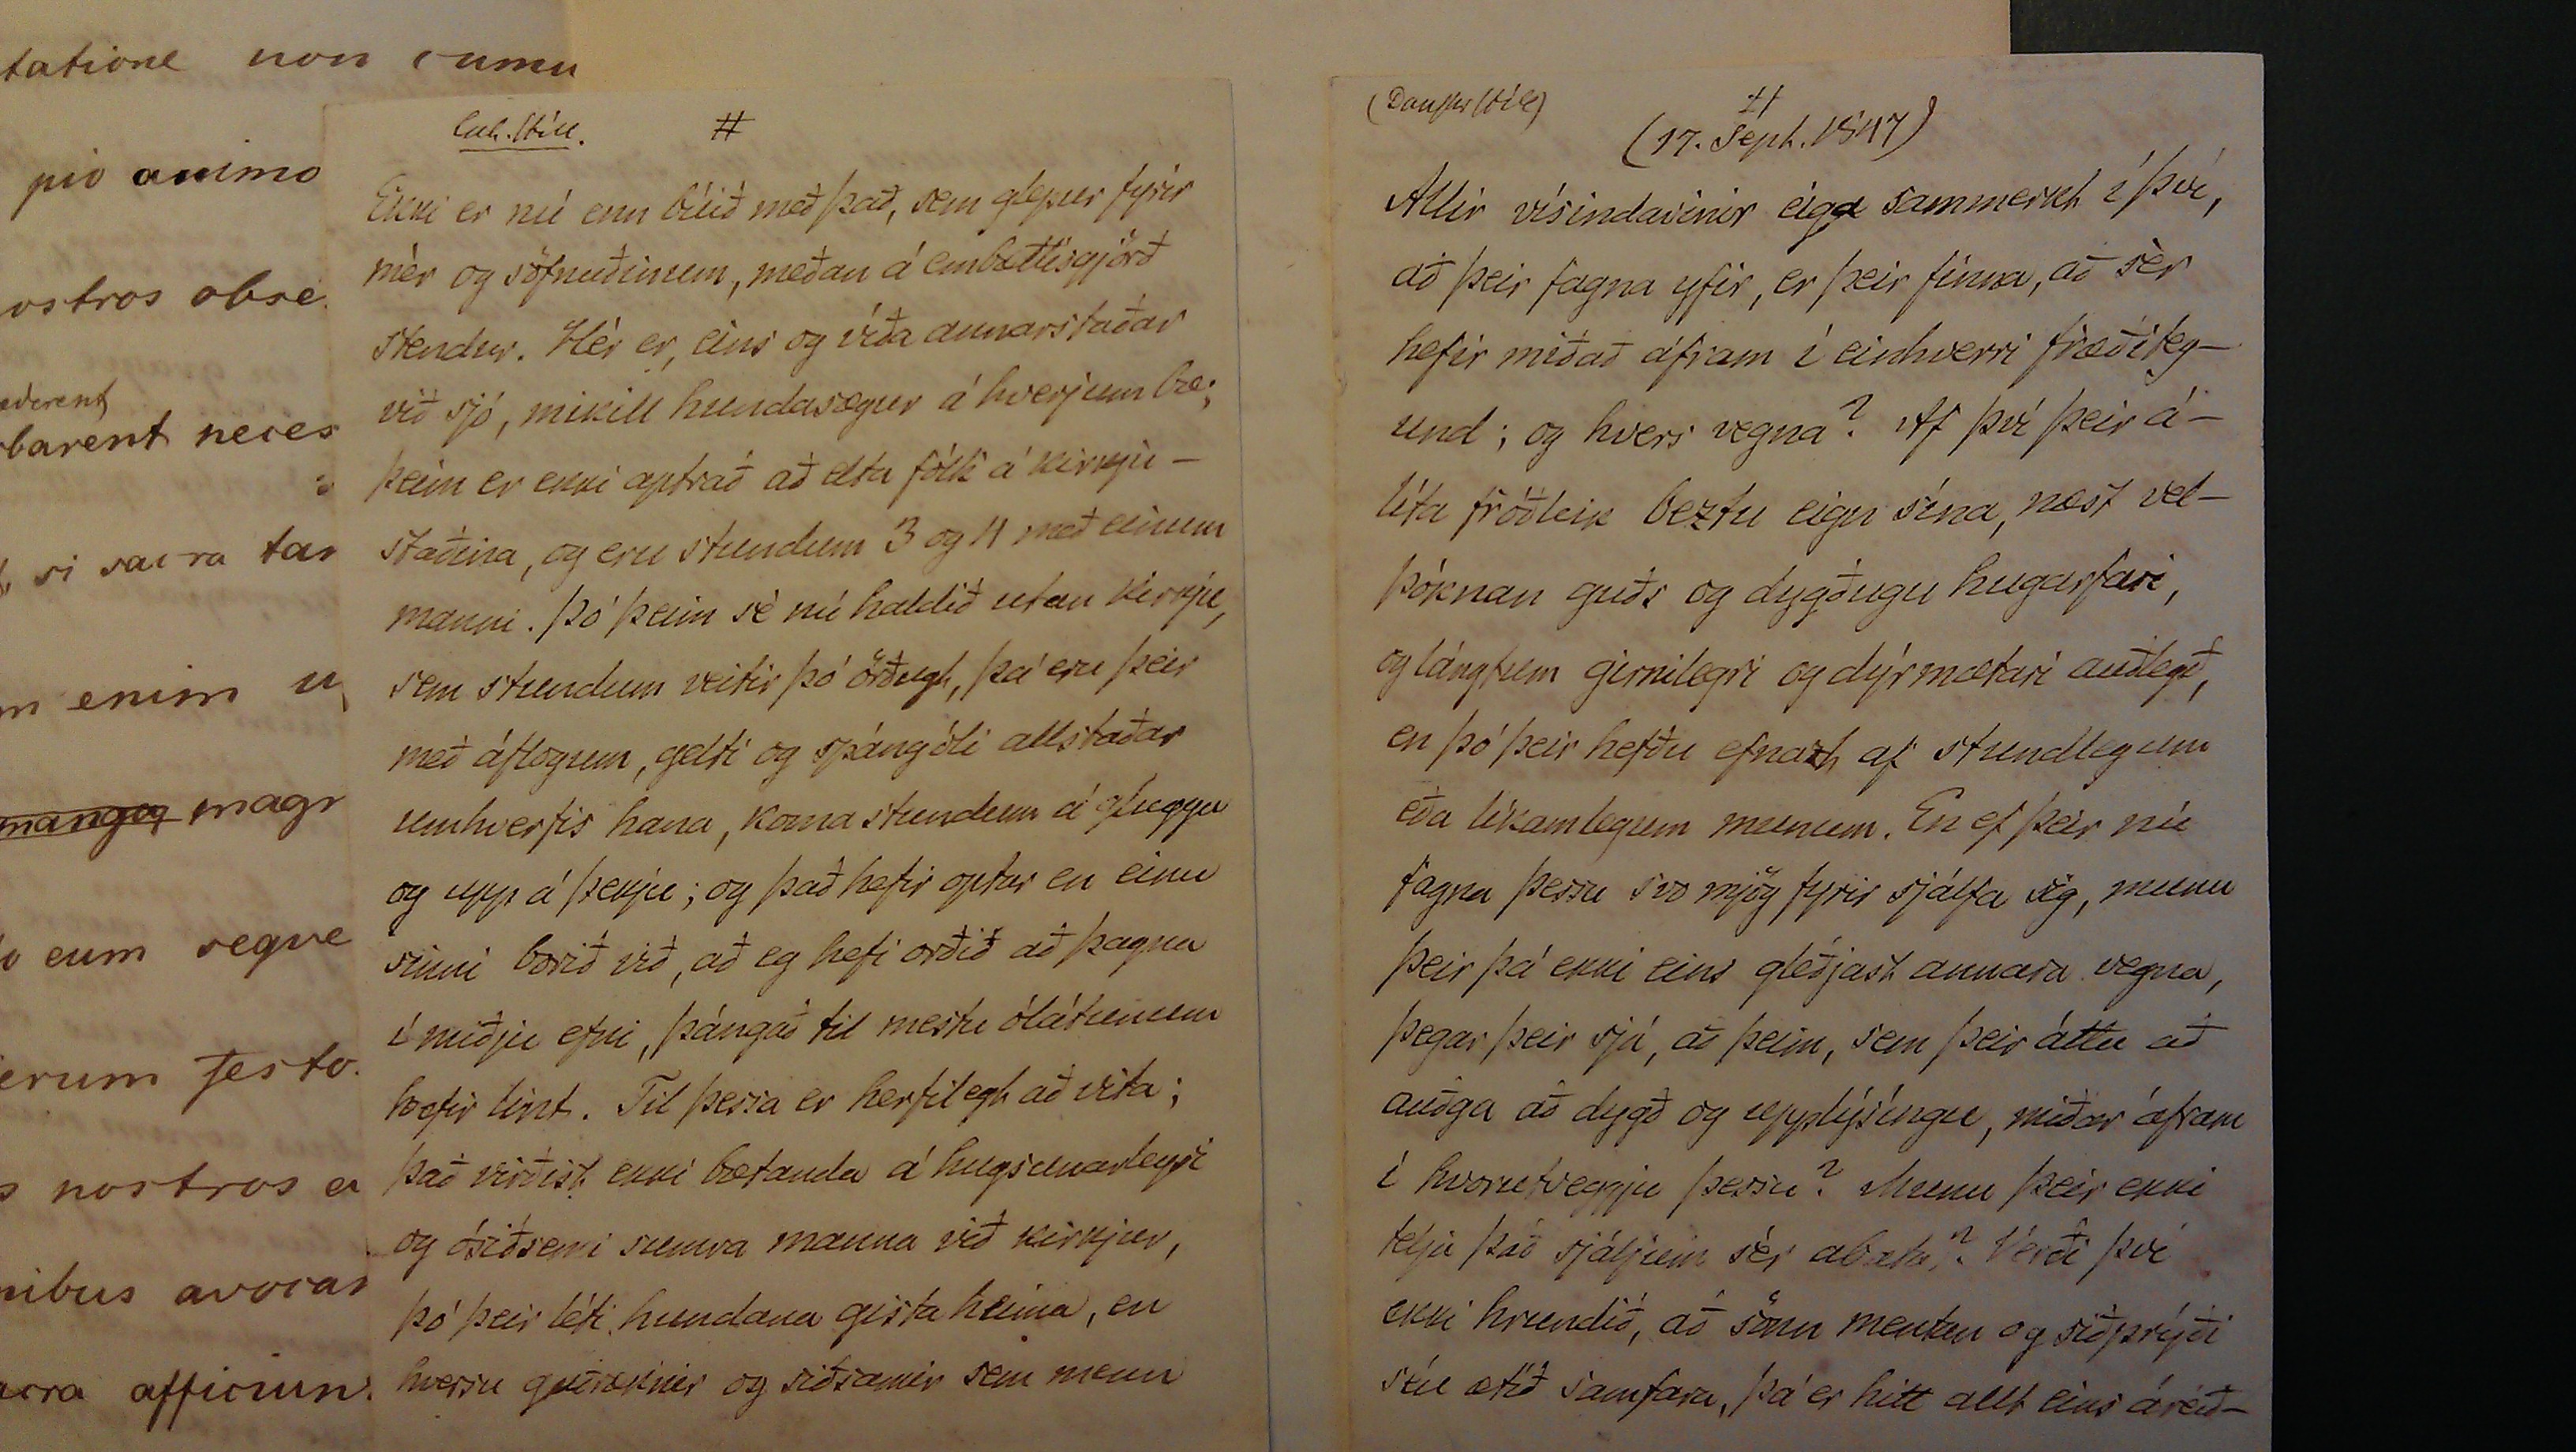 tatione non
pio animo
ostros obse
ederent
barent neces
si sacra tar
m enim
magr
eum seqve
erum festo.
s nostros
nibus avocar
acra afficiun
Lat. Stíll. #
Ekki er nú enn búið með það, sem glepur fyrir
mér og söfnuðinum, meðan á embættisgjörð
stendur. Hér er, eins og víða annarstaðar
við sjó, mikill hundasægur á hverjum bæ;
þeim er ekki aptrað að elta fólk á kirkju-
staðina, og eru stundum 3 og 4 með einum
manni. Þó þeim sé nú haldið utan kirkju,
sem stundum veitir þó örðugt, þá eru þeir
með áflogum, gelti og spángóli allstaðar
umhverfis hana, koma stundum á glugga
og upp á þekju; og það hefir optar en einu
sinni borið við, að eg hefi orðið að þagna
í miðju efni, þángað til mestu ólátunum
hefir lint. Til þessa er herfilegt að vita;
það virðist ekki bætanda á hugsunarleysi
og ósiðsemi sumra manna við kirkjur,
þó þeir léti hundana gista heima, en
hversu guðræknir og siðsamir sem menn
(Danskur Stíll) #
(17. Sept. 1847)
Allir vísindavinir eiga sammerkt í því,
að þeir fagna yfir, er þeir finna, að sèr
hefir miðað áfram í einhverri fræðiteg-
und; og hvers vegna? Af því þeir á-
líta fróðleik beztu eign sína, næst vel-
þóknan guðs og dygðugu hugarfari,
og lángtum girnilegri og dýrmætari auðlegð,
en þó þeir hefðu efnazt af stundlegum
eða líkamlegum munum. En ef þeir nú
fagna þessu svo mjög fyrir sjálfa sig, munu
þeir þá ekki eins gleðjast annara vegna,
þegar þeir sjá, að þeim, sem þeir áttu að
auðga að dygð og upplýsíngu, miðar áfram
í hvorutveggju þessu? Munu þeir ekki
telja það sjálfum sér ábata? Verði því
ekki hrundið, að sönn mentun og siðprýði
séu ætíð samfara, þá er hitt allt eins áreið-